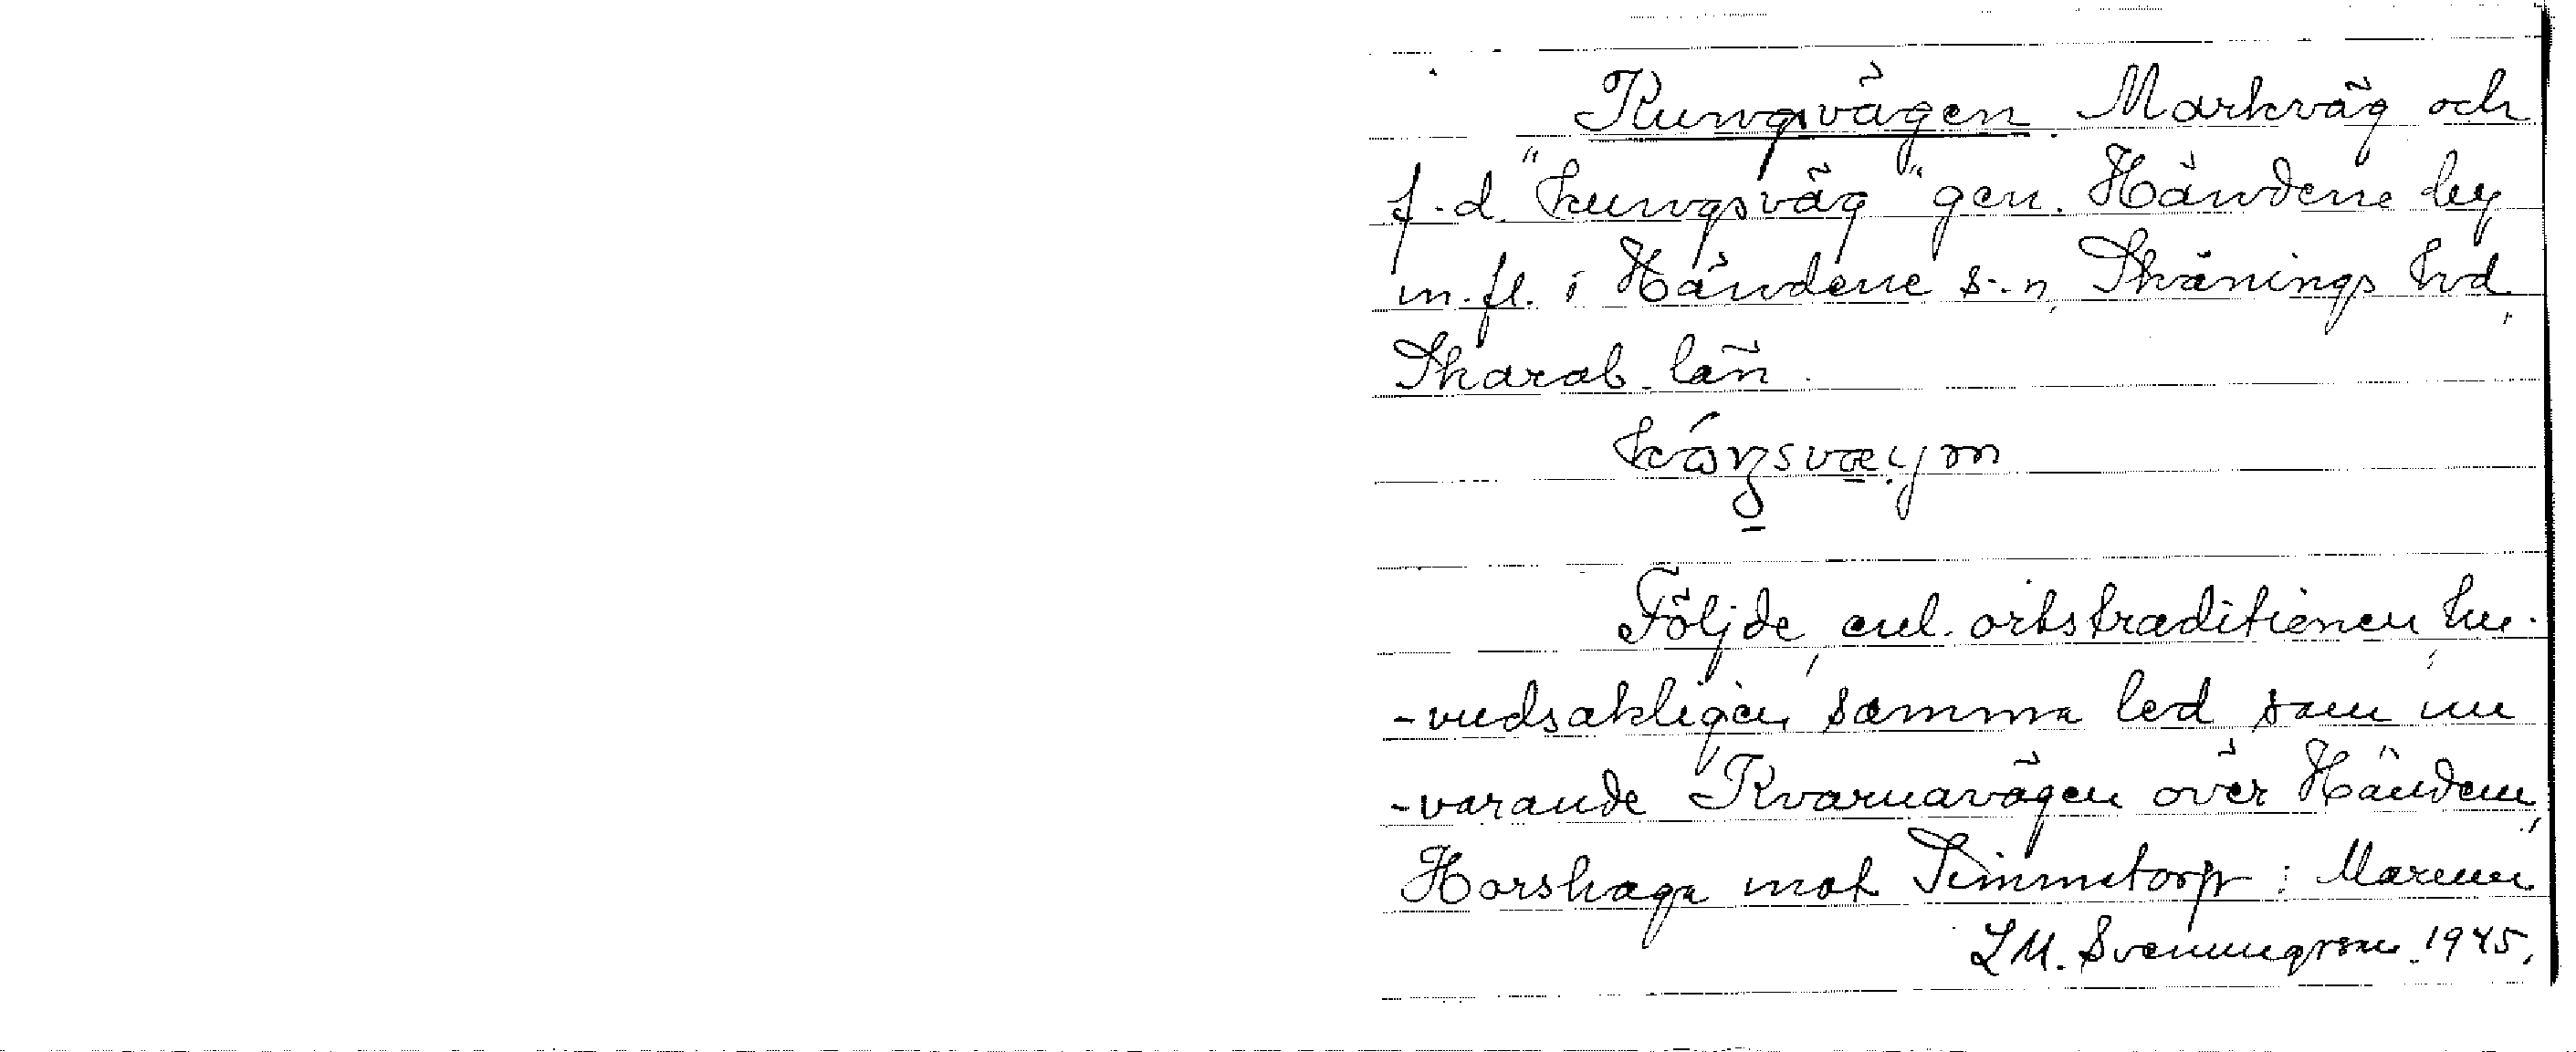 Kungsvägen. Markväg och
f.d. "kungsväg" gen. Händene by
m.fl. i Händene s-n, Skånings hd,
Skarab. län.
Följde, enl. ortstraditionen hu-
-vudsakligen samma led som nu
-varande Kvarnavägen över Händene,
Horshaga mot Simmetorp i Marum
L M. Svenungsson. 1945.